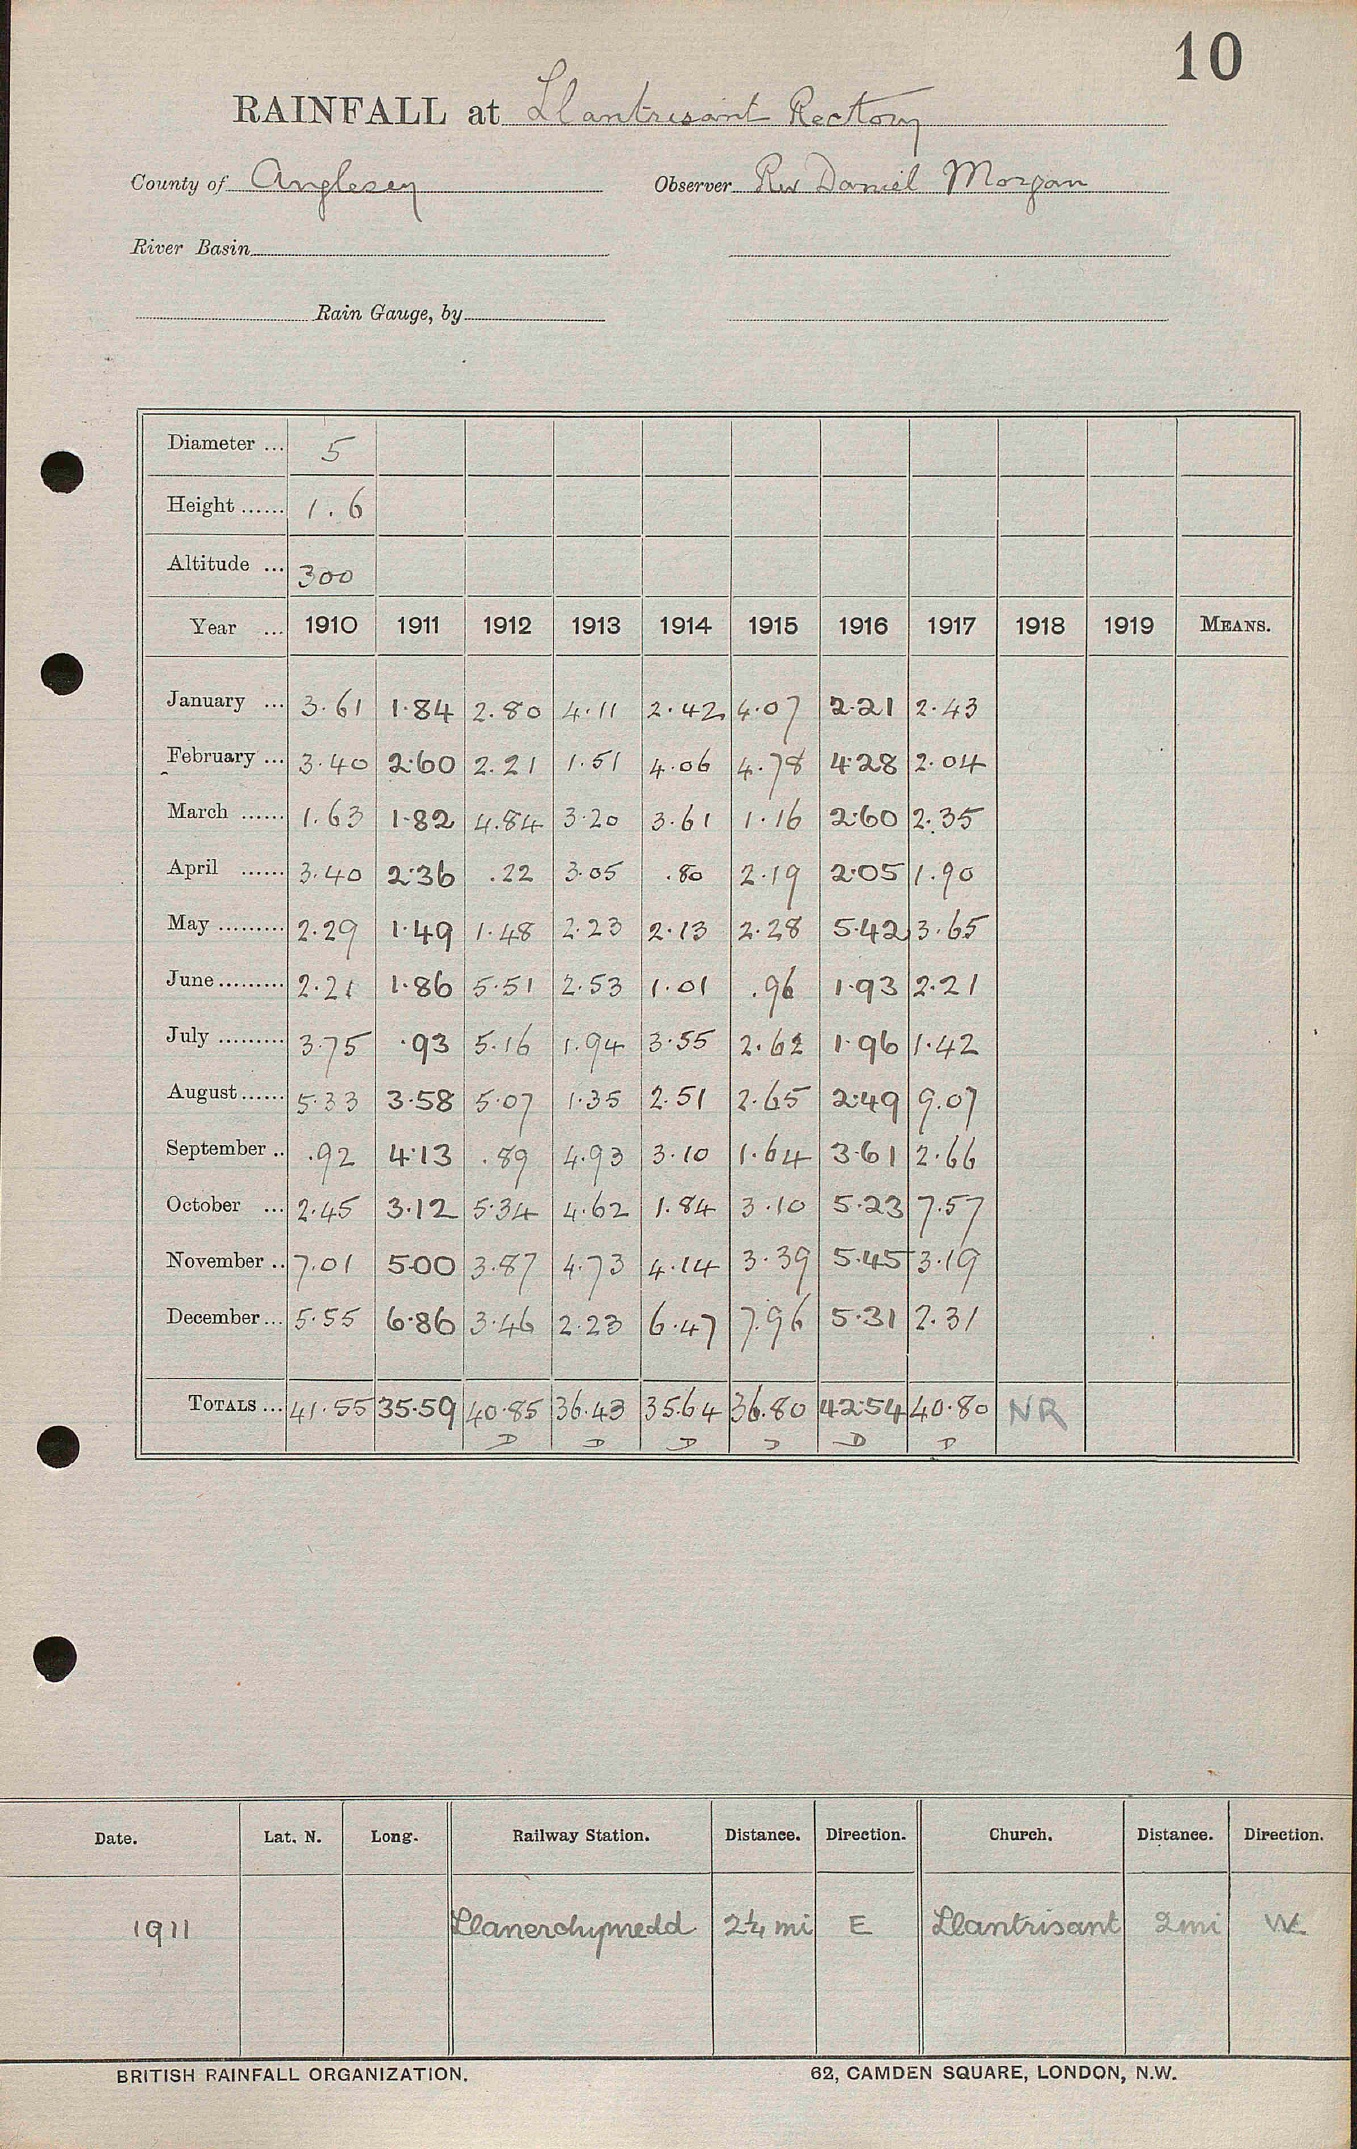 10
RAINFALL at Llantrisant Rectory
County of Anglesey Observer Rev Daniel Morgan
River Basin
Rain Gauge, by
Diameter ... 5
Height ...... 1.6
Altitude ... 300
Year ... 1910 1911 1912 1913 1914 1915 1916 1917 1918 1919 MEANS.
January ... 3.61 1.84 2.80 4.11 2.42 4.07 2.21 2.43
February ... 3.40 2.60 2.21 1.51 4.06 4.78 4.28 2.04
March ...... 1.63 1.82 4.84 3.20 3.61 1.16 2.60 2.35
April ...... 3.40 2.36 .22 3.05 .80 2.19 2.05 1.90
May ......... 2.29 1.49 1.48 2.23 2.13 2.28 5.42 3.65
June ......... 2.21 1.86 5.51 2.53 1.01 .96 1.93 2.21
July ......... 3.75 .93 5.16 1.94 3.55 2.62 1.96 1.42
August ...... 5.33 3.58 5.07 1.35 2.51 2.65 2.49 9.07
September .. .92 4.13 .89 4.93 3.10 1.64 3.61 2.66
October ... 2.45 3.12 5.34 4.62 1.84 3.10 5.23 7.57
November .. 7.01 5.00 3.87 4.73 4.14 3.39 5.45 3.19
December ... 5.55 6.86 3.46 2.23 6.47 7.96 5.31 2.31
TOTALS ... 41.55 35.59 40.85 36.43 35.64 36.80 42.54 40.80 NR
D D D D D D
Date. Lat. N. Long. Railway Station. Distance. Direction. Church. Distance. Direction.
1911 Llanerchymedd 2¼ mi E Llantrisant 2mi W
BRITISH RAINFALL ORGANIZATION. 62, CAMDEN SQUARE, LONDON, N.W.